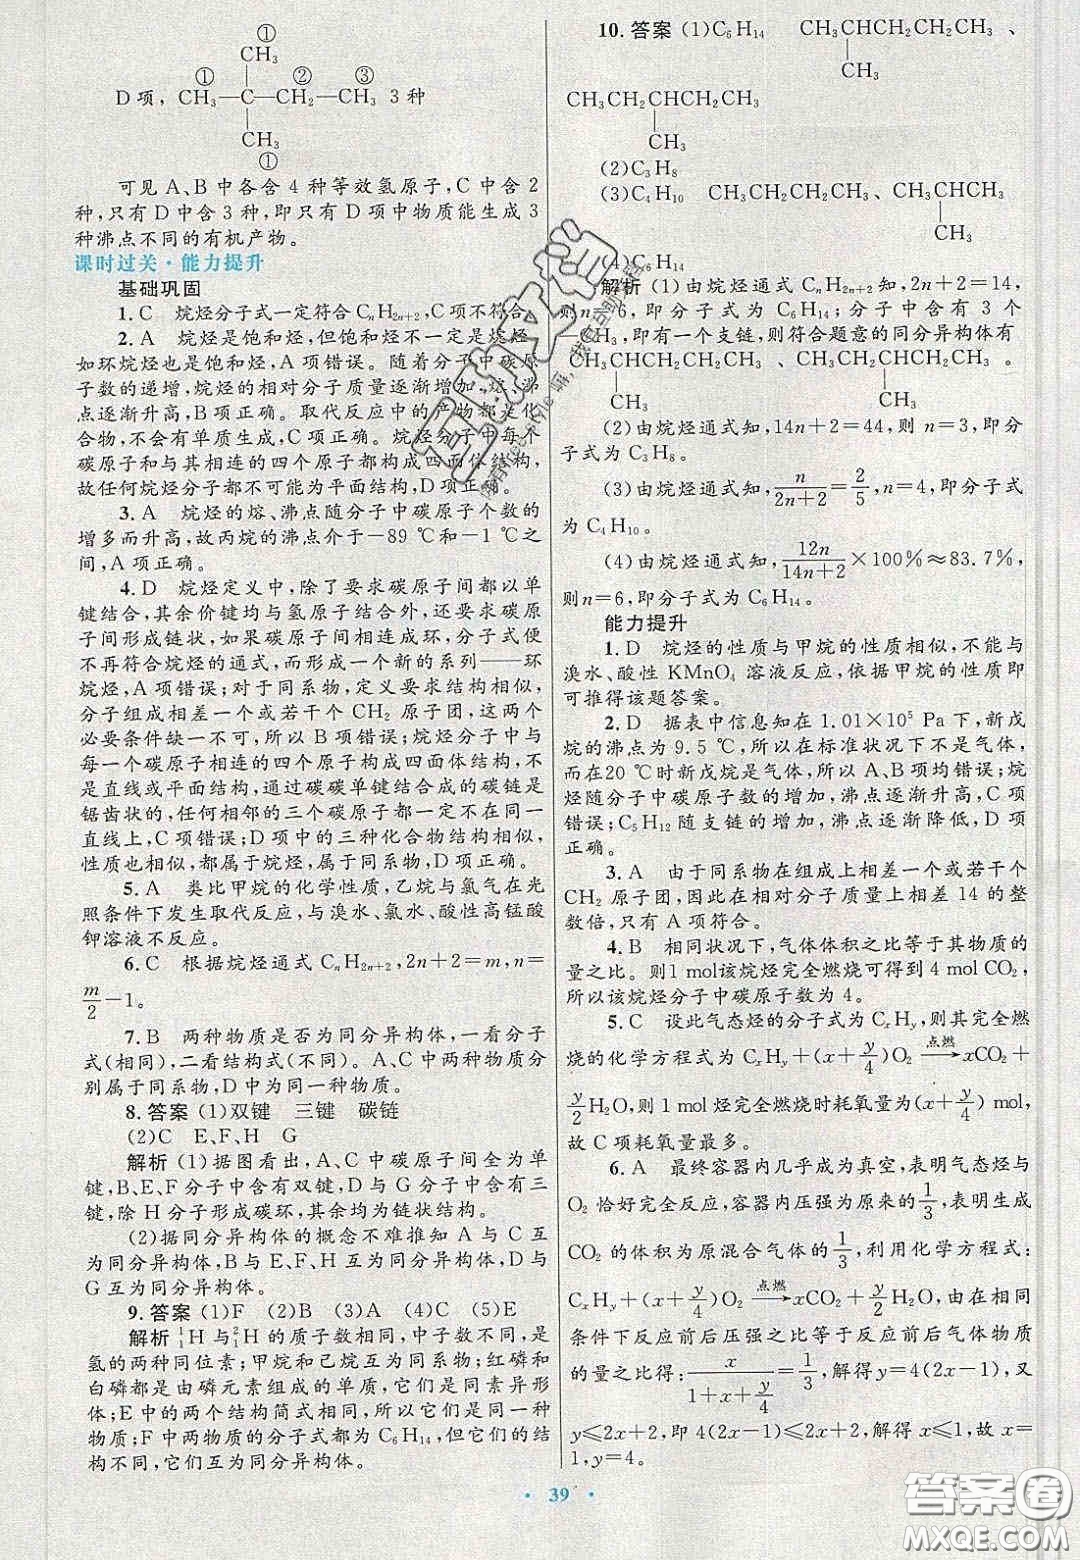 ①
CH₃
①　②　③
D 项，CH₃—C—CH₂—CH₃ 3 种
CH₃
①
可见 A、B 中各含 4 种等效氢原子，C 中含 2
种，只有 D 中含 3 种，即只有 D 项中物质能生成 3
种沸点不同的有机产物。
课时过关·能力提升
基础巩固
1. C　烷烃分子式一定符合 CₙH₂ₙ₊₂，C 项不符合。
2. A　烷烃是饱和烃，但饱和烃不一定是烷烃，
如环烷烃也是饱和烃，A 项错误。随着分子中碳原
子数的递增，烷烃的相对分子质量逐渐增加，熔、沸
点逐渐升高，B 项正确。取代反应中的产物都是化
合物，不会有单质生成，C 项正确。烷烃分子中每个
碳原子和与其相连的四个原子都构成四面体结构，
故任何烷烃分子都不可能为平面结构，D 项正确。
3. A　烷烃的熔、沸点随分子中碳原子个数的
增多而升高，故丙烷的沸点介于－89 ℃和－1 ℃之
间，A 项正确。
4. D　烷烃定义中，除了要求碳原子间都以单
键结合，其余价键均与氢原子结合外，还要求碳原
子间形成链状，如果碳原子间相连成环，分子式便
不再符合烷烃的通式，而形成一个新的系列——环
烷烃，A 项错误；对于同系物，定义要求结构相似，
分子组成相差一个或若干个 CH₂ 原子团，这两个
必要条件缺一不可，所以 B 项错误；烷烃分子中与
每一个碳原子相连的四个原子构成四面体结构，不
是直线或平面结构，通过碳碳单键形成的碳链是
锯齿状的，任何相邻的三个碳原子都一定不在同一
直线上，C 项错误；D 项中的三种化合物结构相似，
性质也相似，都属于烷烃，属于同系物，D 项正确。
5. A　类比甲烷的化学性质，乙烷与氯气在光
照条件下发生取代反应，与溴水、氯水、酸性高锰酸
钾溶液不反应。
6. C　根据烷烃通式 CₙH₂ₙ₊₂，2n＋2＝m，n＝
m/2－1。
7. B　两种物质是否为同分异构体，一看分子
式（相同），二看结构式（不同）。A、C 中两种物质分
别属于同系物，D 中为同一种物质。
8. 答案 (1)双键　三键　碳链
(2)C　E、F、H　G
解析 (1)据图看出，A、C 中碳原子间全为单
键，B、E、F 分子中含有双键，D、G 分子中含有三
键，除 H 分子形成碳环，其余均为链状结构。
(2)据同分异构体的概念不难推知 A 与 C 互
为同分异构体，B 与 E、F、H 互为同分异构体，D 与
G 互为同分异构体。
9. 答案 (1)F　(2)B　(3)A　(4)C　(5)E
解析 ¹₁H 与²₁H 的质子数相同，中子数不同，是
氢的两种同位素；甲烷和己烷互为同系物；红磷和
白磷都是由磷元素组成的单质，它们是同素异形
体；E 中的两个结构简式相同，所以它们是同一种
物质；F 中两物质的分子式都为 C₆H₁₄，但它们的结
构不同，它们互为同分异构体。
10. 答案 (1)C₆H₁₄　CH₃CHCH₂CH₂CH₃、
CH₃
CH₃CH₂CHCH₂CH₃
CH₃
(2)C₃H₈
(3)C₄H₁₀　CH₃CH₂CH₂CH₃、CH₃CHCH₃
CH₃
(4)C₆H₁₄
解析 (1)由烷烃通式 CₙH₂ₙ₊₂ 知，2n＋2＝14，
则n＝6，即分子式为 C₆H₁₄；分子中含有 3 个
—CH₃，即有一个支链，则符合题意的同分异构体有
CH₃CHCH₂CH₂CH₃、CH₃CH₂CHCH₂CH₃。
CH₃　CH₃
(2)由烷烃通式知，14n＋2＝44，则 n＝3，即分
子式为 C₃H₈。
(3)由烷烃通式知，n/(2n＋2)＝2/5，n＝4，即分子式
为 C₄H₁₀。
(4)由烷烃通式知，12n/(14n＋2)×100％≈83.7％，
则n＝6，即分子式为 C₆H₁₄。
能力提升
1. D　烷烃的性质与甲烷的性质相似，不能与
溴水、酸性 KMnO₄ 溶液反应，依据甲烷的性质即
可推得该题答案。
2. D　据表中信息知在 1.01×10⁵ Pa 下，新戊
烷的沸点为 9.5 ℃，所以在标准状况下不是气体，
而在20 ℃时新戊烷是气体，所以 A、B 项均错误；烷
烃随分子中碳原子数的增加，沸点逐渐升高，C 项
错误；C₅H₁₂ 随支链的增加，沸点逐渐降低，D 项
正确。
3. A　由于同系物在组成上相差一个或若干个
CH₂ 原子团，因此在相对分子质量上相差 14 的整
数倍，只有 A 项符合。
4. B　相同状况下，气体体积之比等于其物质的
量之比。则1 mol该烷烃完全燃烧可得到 4 mol CO₂，
所以该烷烃分子中碳原子数为 4。
5. C　设此气态烃的分子式为 CₓHᵧ，则其完全燃
烧的化学方程式为 CₓHᵧ＋(x＋y/4)O₂ —点燃→ xCO₂＋
y/2 H₂O，则 1 mol 烃完全燃烧时耗氧量为(x＋y/4) mol，
故 C 项耗氧量最多。
6. A　最终容器内几乎成为真空，表明气态烃与
O₂ 恰好完全反应，容器内压强为原来的1/3，表明生成
CO₂ 的体积为原混合气体的1/3，利用化学方程式：
CₓHᵧ＋(x＋y/4)O₂ —点燃→ xCO₂＋y/2 H₂O，由在相同
条件下反应前后压强之比等于反应前后气体物质
的量之比得：x/(1＋x＋y/4)＝1/3，解得 y＝4(2x－1)，又
y≤2x＋2，即 4(2x－1)≤2x＋2，解得 x≤1，故 x＝
1，y＝4。
· 39 ·
答案圈
MXQE.COM